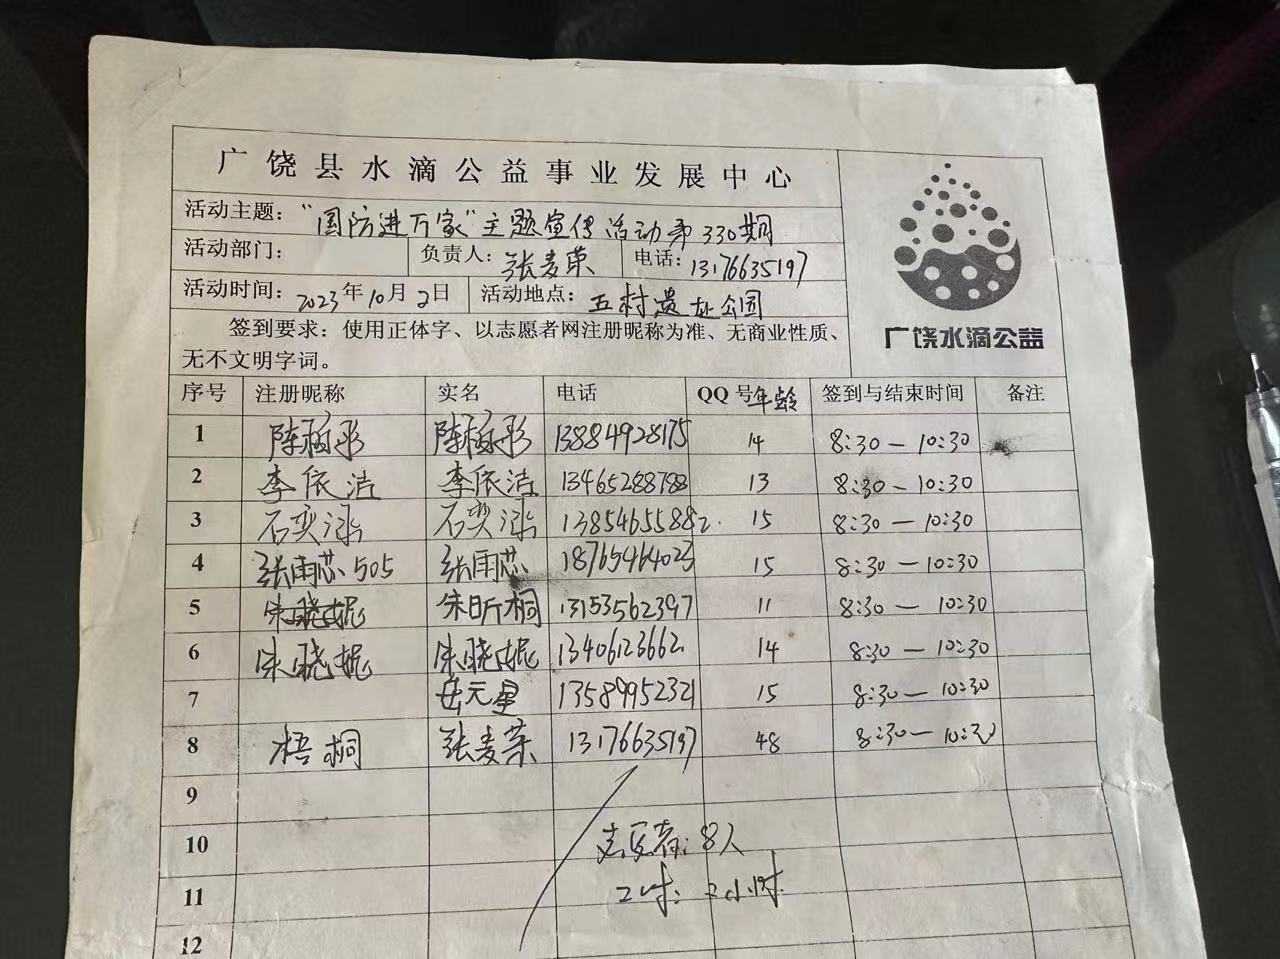 广饶县水滴公益事业发展中心
活动主题：“国防进万家”主题宣传活动第330期
活动部门： 负责人：张麦荣 电话：13176635197
活动时间：2023年10月2日 活动地点：五村遗址公园
签到要求：使用正体字、以志愿者网注册昵称为准、无商业性质、
无不文明字词。
广饶水滴公益
序号 注册昵称 实名 电话 QQ号年龄 签到与结束时间 备注
1 陈 陈 13884928175 14 8:30—10:30
2 李依洁 李依洁 13465288788 13 8:30—10:30
3 石奕泓 石奕泓 13854655882. 15 8:30—10:30
4 张雨芯505 张雨芯 18765464023 15 8:30—10:30
5 朱晓妮 朱昕桐 13153562397 11 8:30—10:30
6 朱晓妮 朱晓妮 13406123662 14 8:30—10:30
7 岳元星 13589952321 15 8:30—10:30
8 梧桐 张麦荣 13176635197 48 8:30—10:30
9
10 志愿者：8人
11 工时：2小时
12